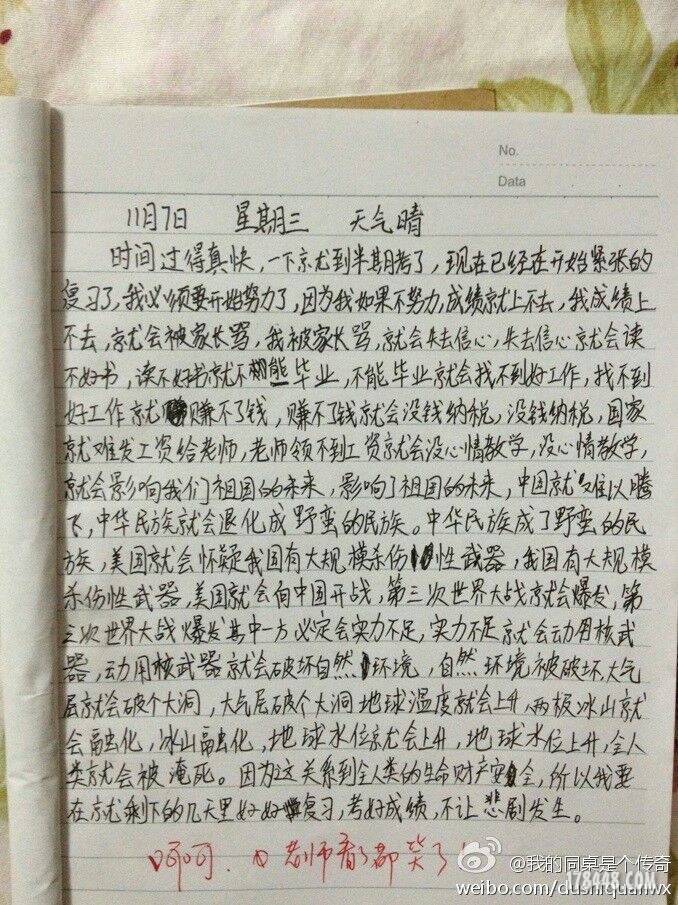 No.
Data
11月7日 星期三 天气晴
时间过得真快，一下就到半期考了，现在已经在开始紧张的
复习了，我必须要开好努力了，因为我如果不努力，成绩就上不去，我成绩上
不去，就会被家长骂，我被家长骂，就会失去信心，失去信心就会读
不好书，读不好书就不能毕业，不能毕业就会找不到好工作，找不到
好工作就赚不了钱，赚不了钱就会没钱纳税，没钱纳税，国家
就难发工资给老师，老师领不到工资就会没心情教学，没心情教学，
就会影响我们祖国的未来，影响了祖国的未来，中国就难以腾
飞，中华民族就会退化成野蛮的民族。中华民族成了野蛮的民
族，美国就会怀疑我国有大规模杀伤性武器，我国有大规模
杀伤性武器，美国就会向中国开战，第三次世界大战就会爆发，第
三次世界大战爆发其中一方必定会实力不足，实力不足就会动用核武
器，动用核武器就会破坏自然环境，自然环境被破坏，大气
层就会破个大洞，大气层破个大洞地球温度就会上升，两极冰山就
会融化，冰山融化，地球水位就会上升，地球水位上升，全人
类就会被淹死。因为这关系到全人类的生命财产安全，所以我要
在就剩下的几天里好好复习，考好成绩，不让悲剧发生。
呵呵. 老师看了都笑了
@我的同桌是个传奇
weibo.com/dushiquanwx
178448.COM